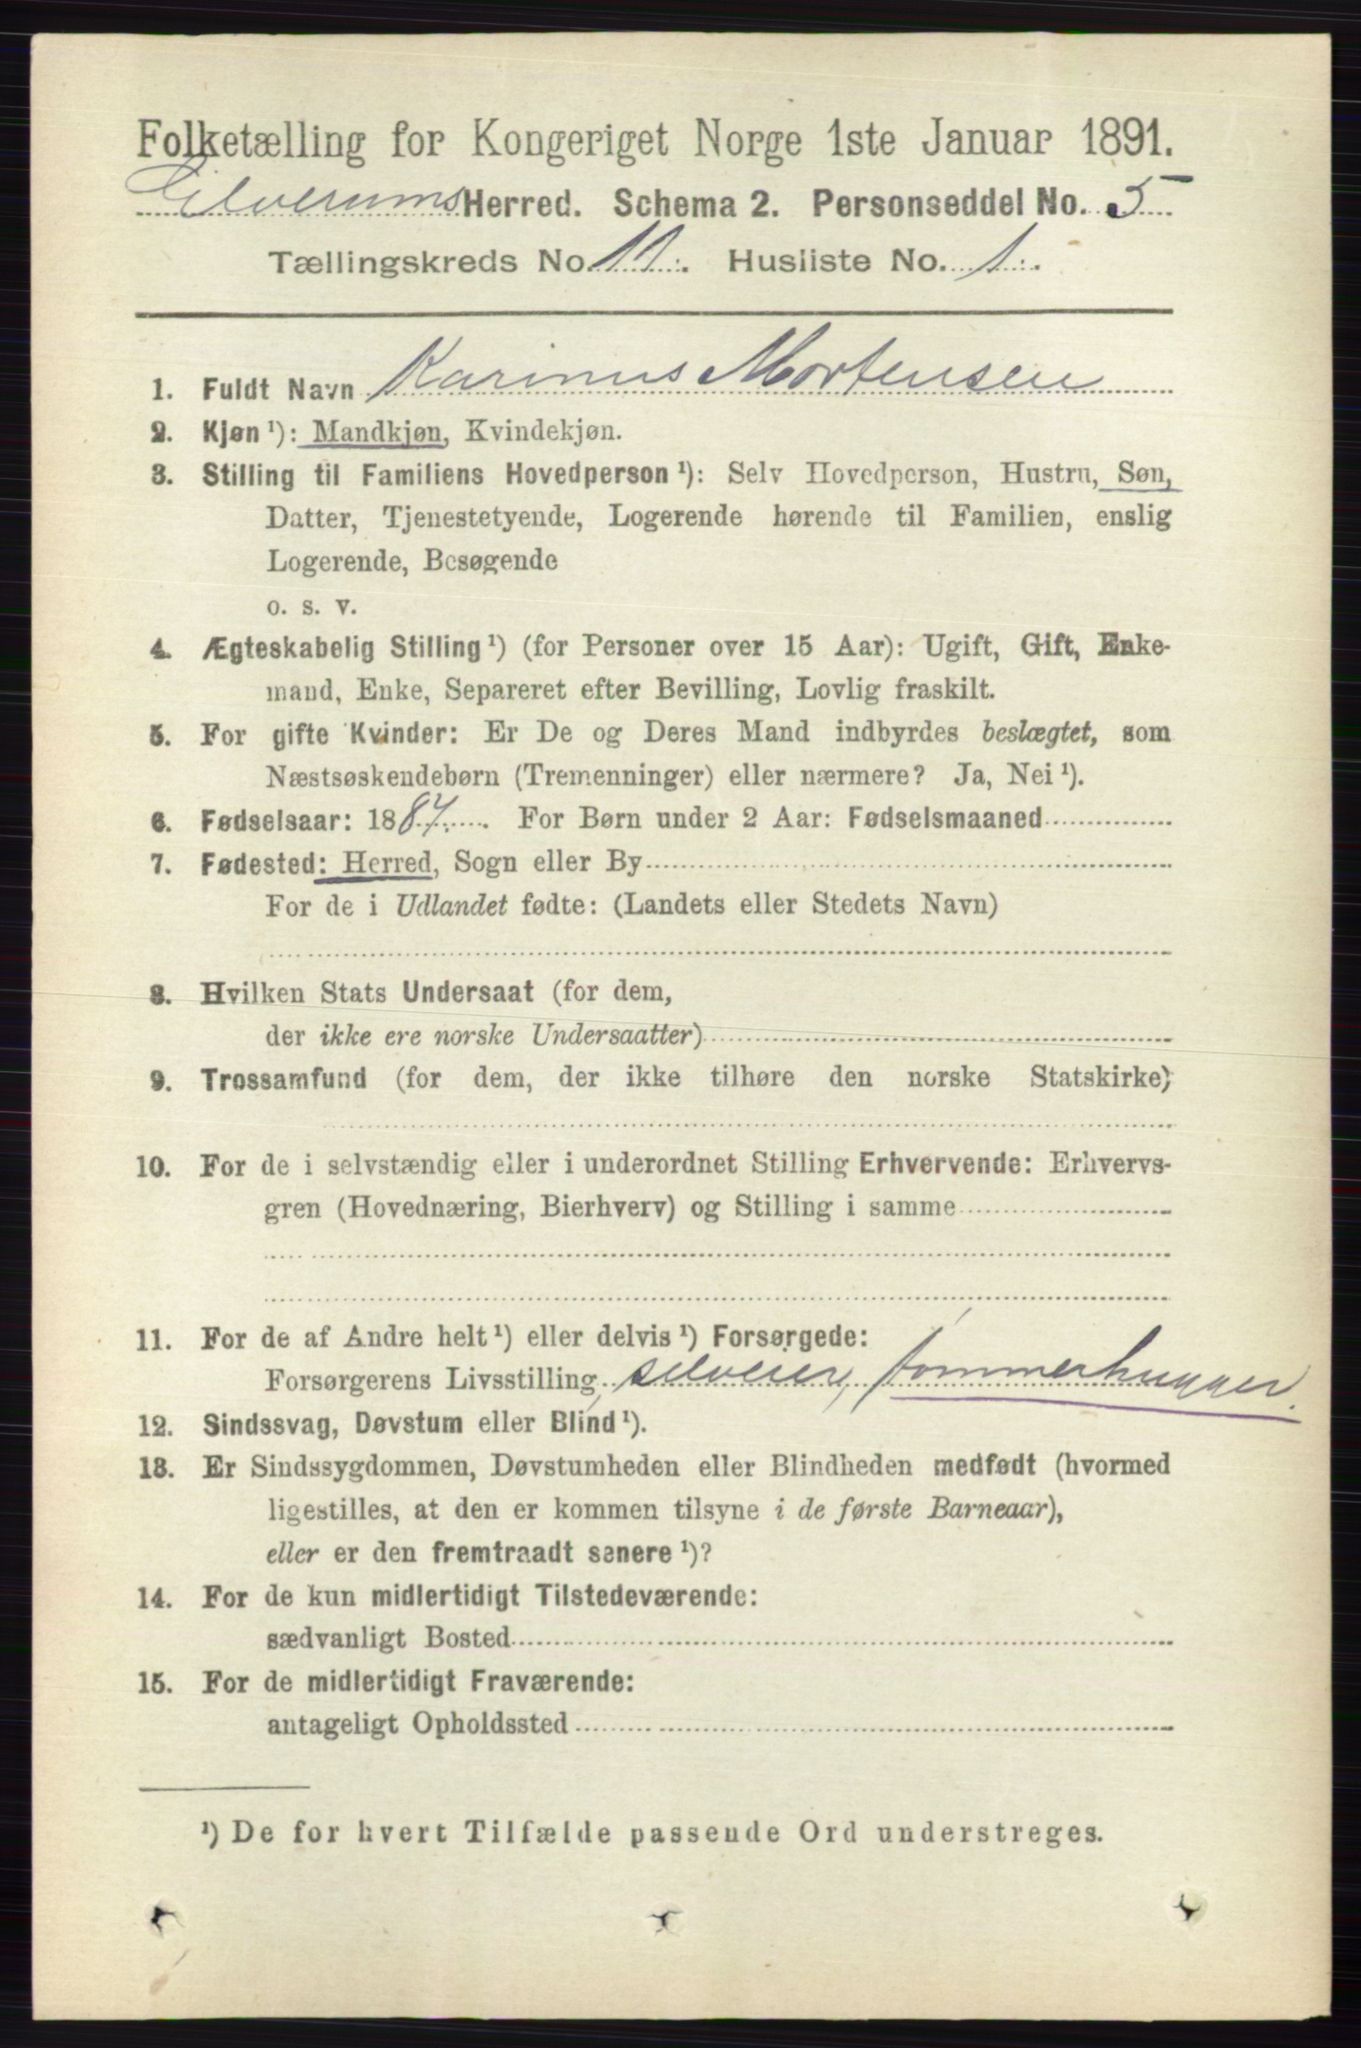 Folketælling for Kongeriget Norge 1ste Januar 1891.
Elverums Herred. Schema 2. Personseddel No. 5
Tællingskreds No. 11. Husliste No. 1.
1. Fuldt Navn Karinus Mortensen
2. Kjøn ¹): Mandkjøn, Kvindekjøn.
3. Stilling til Familiens Hovedperson ¹): Selv Hovedperson, Hustru, Søn,
Datter, Tjenestetyende, Logerende hørende til Familien, enslig
Logerende, Besøgende
o. s. v.
4. Ægteskabelig Stilling ¹) (for Personer over 15 Aar): Ugift, Gift, Enke-
mand, Enke, Separeret efter Bevilling, Lovlig fraskilt.
5. For gifte Kvinder: Er De og Deres Mand indbyrdes beslægtet, som
Næstsøskendebørn (Tremenninger) eller nærmere? Ja, Nei ¹).
6. Fødselsaar: 1887. For Børn under 2 Aar: Fødselsmaaned
7. Fødested: Herred, Sogn eller By
For de i Udlandet fødte: (Landets eller Stedets Navn)
8. Hvilken Stats Undersaat (for dem,
der ikke ere norske Undersaatter)
9. Trossamfund (for dem, der ikke tilhøre den norske Statskirke)
10. For de i selvstændig eller i underordnet Stilling Erhvervende: Erhvervs-
gren (Hovednæring, Bierhverv) og Stilling i samme
11. For de af Andre helt ¹) eller delvis ¹) Forsørgede:
Forsørgerens Livsstilling selveier, tømmerhugger.
12. Sindssvag, Døvstum eller Blind ¹).
13. Er Sindssygdommen, Døvstumheden eller Blindheden medfødt (hvormed
ligestilles, at den er kommen tilsyne i de første Barneaar),
eller er den fremtraadt senere ¹)?
14. For de kun midlertidigt Tilstedeværende:
sædvanligt Bosted
15. For de midlertidigt Fraværende:
antageligt Opholdssted
¹) De for hvert Tilfælde passende Ord understreges.